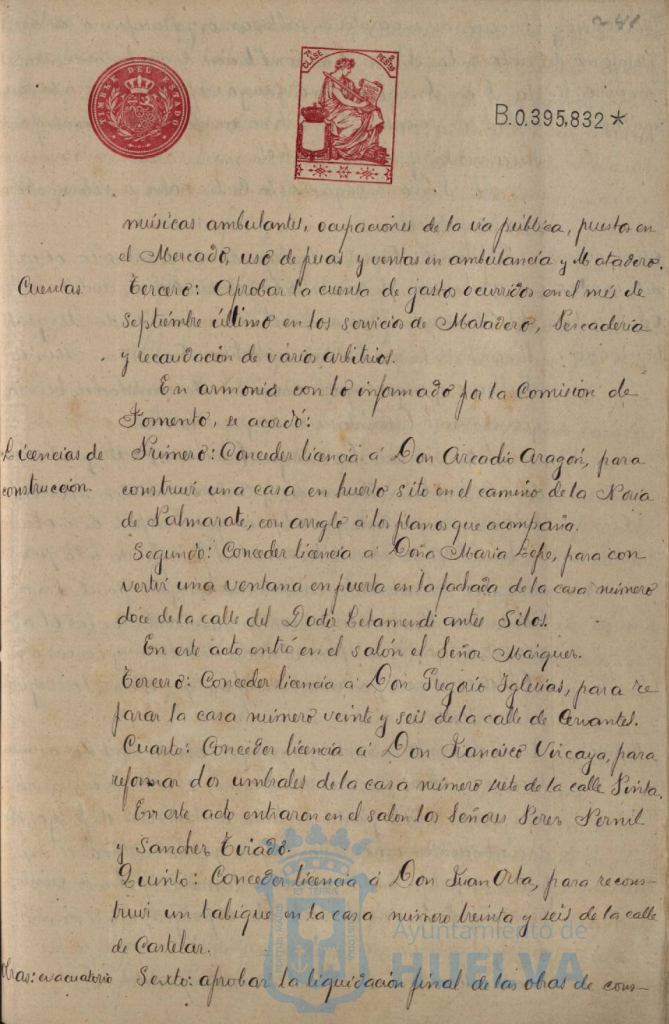 241
TIMBRE DEL ESTADO
7ª CLASE
PESETAS
B.0.395,832*
músicas ambulantes, ocupaciones de la via pública, puestos en
el Mercado, uso de pesas y ventas en ambulancia y Matadero.
Cuentas. Tercero: Aprobar la cuenta de gastos ocurridos en el mes de
Septiembre último en los servicios de Matadero, Pescaderia
y recaudación de varios arbitrios.
En armonia con lo informado por la Comision de
Fomento, se acordó:
Licencias de Primero: Conceder licencia á Don Arcadio Aragón, para
construcción. construir una casa en huerto sito en el camino de la Noria
de Palmarate, con arreglo a los planos que acompaña.
Segundo: Conceder licencia á Doña Maria Lepe, para con
vertir una ventana en puerta en la fachada de la casa número
doce de la calle del Doctor Letamendi antes Silos.
En este acto entró en el salón el Señor Marquez.
Tercero: Conceder licencia á Don Gregorio Iglesias, para re
parar la casa número veinte y seis de la calle de Cervantes.
Cuarto: Conceder licencia á Don Francisco Vizcaya, para
reformar dos umbrales de la casa número siete de la calle Pinta.
En este acto entraron en el salon los Señores Perez Pernil
y Sanchez Tirado.
Quinto: Conceder licencia á Don Juan Orta, para recons-
truir un tabique en la casa número treinta y seis de la calle
de Castelar.
Obras: evacuatorio Sexto: aprobar la liquidación final de las obras de cons-
Ayuntamiento de
HUELVA